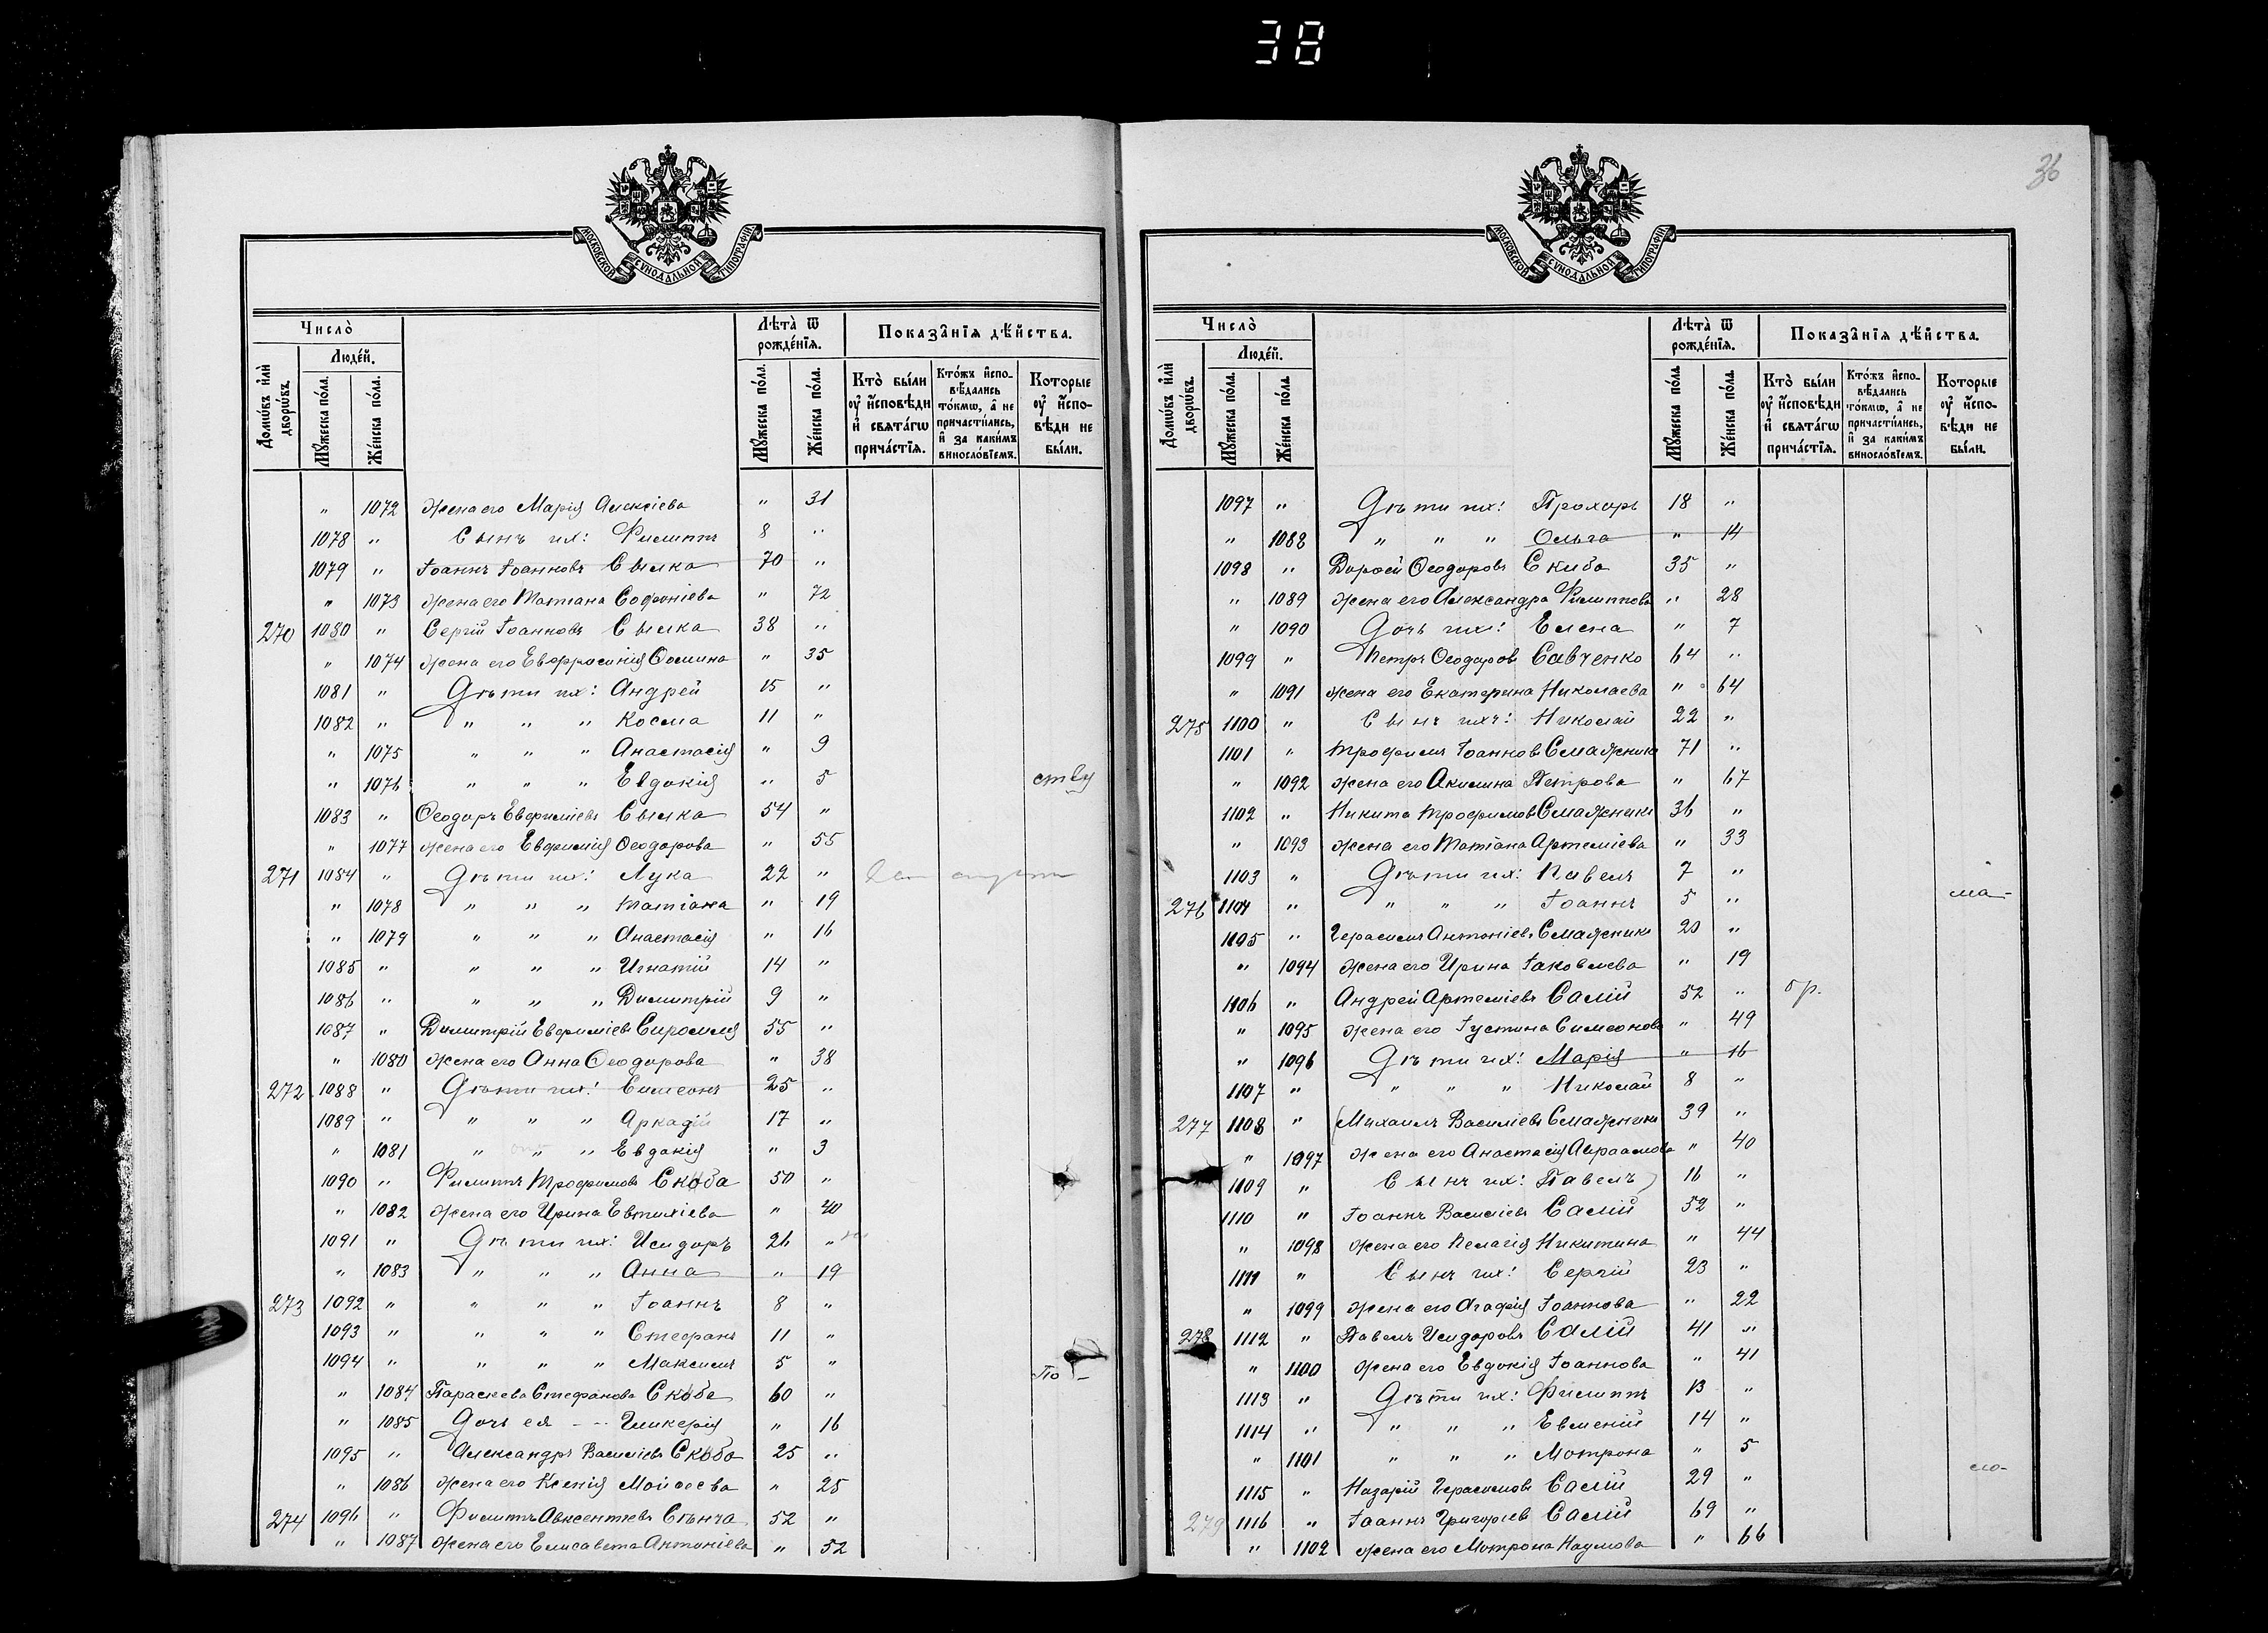 38
МОСКОВСКОЙ СѴНОДАЛЬНОЙ ТИПОГРАФІИ
Число̀
Домѡ́въ и҆лѝ дворѡ́въ.
Люде́й.
Мꙋ́жеска по́ла.
Же́нска по́ла.
Лѣта̀ ѿ рожде́нїѧ.
Мꙋ́жеска по́ла.
Же́нска по́ла.
Показа̂нїѧ дѣ́йства.
Кто̀ бы́ли ᲂу҆ и҆́сповѣди и҆ свѧта́гѡ прича́стїѧ.
Кто́жъ и҆спо-вѣ́дались то́кмѡ, а҆ не причасти́лись, и҆ за каки́мъ виносло́вїемъ.
Которые ᲂу҆ и҆́спо-вѣди не бы́ли.
" 1072 Жена его Марія Алексіева " 31
1078 " Сынъ их: Филиппъ 8 "
1079 " Іоаннъ Іоанновъ Сылка 70 "
" 1073 Жена его Татіана Софоніева " 72
270 1080 " Сергій Іоанновъ Сылка 38 "
" 1074 Жена его Евфросинія Ѳомина " 35
1081 " Дѣти их: Андрей 15 "
1082 " " " " Косма 11 "
" 1075 " " " Анастасія " 9
" 1076 " " " Евдокія " 5 ству
1083 " Ѳеодоръ Евфиміевъ Сылка 54 "
" 1077 Жена его Евфимія Ѳеодорова " 55
271 1084 " Дѣти их: Лука 22 "
" 1078 " " " Татіана " 19
" 1079 " " " Анастасія " 16
1085 " " " " Игнатій 14 "
1086 " " " " Димитрій 9 "
1087 " Димитрій Евфиміевъ 55 "
" 1080 Жена его Анна Ѳеодорова " 38
272 1088 " Дѣти их: Симеонъ 25 "
1089 " " " " Аркадій 17 "
" 1081 " " " Евдокія " 3
1090 " Филиппъ Трофимовъ Скоба 50 "
" 1082 Жена его Ирина Евтихіева " 40
1091 " Дѣти их: Исидоръ 26 "
" 1083 " " " Анна " 19
273 1092 " " " " Іоаннъ 8 "
1093 " " " " Стефанъ 11 "
1094 " " " " Максимъ 5 " По-
" 1084 Параскева Стефанова Скоба 60 "
" 1085 Дочь ея - - Гликерія " 16
1095 " Александръ Василіевъ Скоба 25 "
" 1086 Жена его Ксенія Моисеева " 25
274 1096 " Филиппъ Авксентіевъ 52 "
" 1087 Жена его Елисавета Антоніева " 52
36
МОСКОВСКОЙ СѴНОДАЛЬНОЙ ТИПОГРАФІИ
Число̀
Домѡ́въ и҆лѝ дворѡ́въ.
Люде́й.
Мꙋ́жеска по́ла.
Же́нска по́ла.
Лѣта̀ ѿ рожде́нїѧ.
Мꙋ́жеска по́ла.
Же́нска по́ла.
Показа̂нїѧ дѣ́йства.
Кто̀ бы́ли ᲂу҆ и҆́сповѣди и҆ свѧта́гѡ прича́стїѧ.
Кто́жъ и҆спо-вѣ́дались то́кмѡ, а҆ не причасти́лись, и҆ за каки́мъ виносло́вїемъ.
Которые ᲂу҆ и҆́спо-вѣди не бы́ли.
1097 " Дѣти их: Прохоръ 18 "
" 1088 " " " Ольга " 14
1098 " Дорофей Ѳеодоровъ Скиба 35 "
" 1089 Жена его Александра Филиппова " 28
" 1090 Дочь их: Елена " 7
1099 " Петръ Ѳеодоровъ Савченко 64 "
" 1091 Жена его Екатерина Николаева " 64
275 1100 " Сынъ ихъ: Николай 22 "
1101 " Трофимъ Іоанновъ Смажникъ 71 "
" 1092 Жена его Акилина Петрова " 67
1102 " Никита Трофимовъ Смажникъ 36 "
" 1093 Жена его Татіана Артеміева " 33
1103 " Дѣти их: Павелъ 7 "
276 1104 " " " " Іоаннъ 5 " ма-
1105 " Герасимъ Антоніевъ Смажникъ 20 "
" 1094 Жена его Ирина Іаковлева " 19
1106 " Андрей Артеміевъ Салій 52 " бр.
" 1095 Жена его Іустина Симеонова " 49
" 1096 Дѣти их: Марія " 16
1107 " " " " Николай 8 "
277 1108 " (Михаилъ Василіевъ Смажникъ 39 "
" 1097 Жена его Анастасія Авраамова " 40
1109 " Сынъ их: Павелъ) 16 "
1110 " Іоаннъ Василіевъ Салій 52 "
" 1098 Жена его Пелагія Никитина " 44
1111 " Сынъ их: Сергій 23 "
" 1099 Жена его Агафія Іоаннова " 22
278 1112 " Павелъ Исидоровъ Салій 41 "
" 1100 Жена его Евдокія Іоаннова " 41
1113 " Дѣти их: Филиппъ 13 "
1114 " " " " Евмений 14 "
" 1101 " " " Мотрона " 5
1115 " Назарій Герасимовъ Салій 29 "
279 1116 " Іоаннъ Григоріев Салій 69 "
" 1102 Жена его Мотрона Наумова " 66